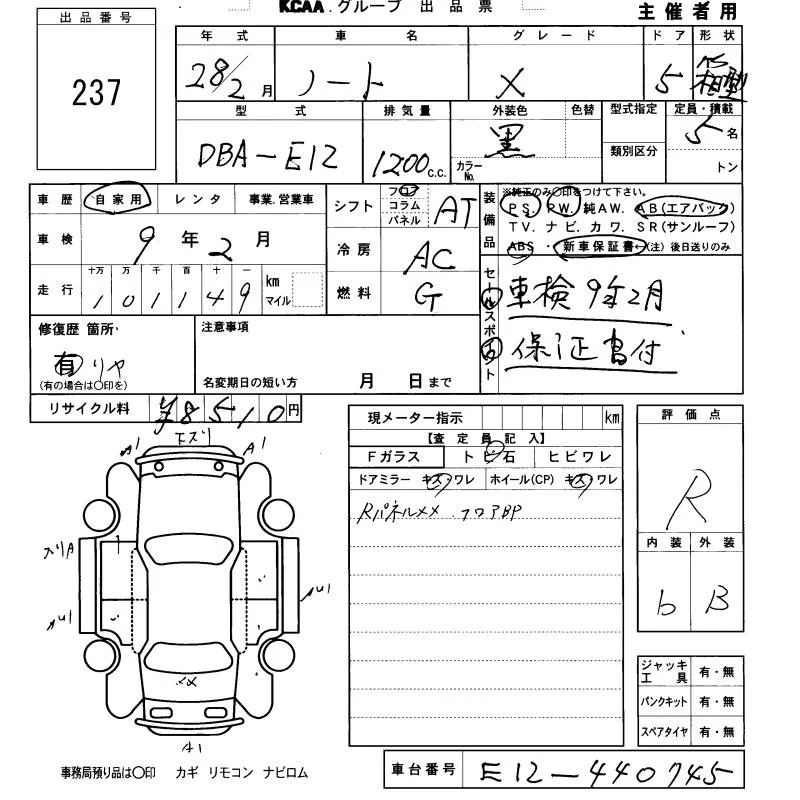 KCAA.グループ 出品票
主催者用
出品番号
237
年式 車名 グレード ドア 形状
28/2月 ノート X 5 箱型
型式 排気量 外装色 色替 型式指定 定員・積載
DBA-E12 1200c.c. 黒 カラーNo. 類別区分 5名 トン
車歴 自家用 レンタ 事業.営業車
シフト フロア コラム パネル AT
装備品 ※純正のみ○印をつけて下さい。
PS. PW. 純AW. AB(エアバック)
TV. ナビ. カワ. SR(サンルーフ)
ABS ・ 新車保証書←(注)後日送りのみ
車検 9年2月
冷房 AC
走行 十万 万 千 百 十 一 km マイル
101149
燃料 G
セールスポイント
車検9年2月
保証書付
修復歴 箇所・
有 リヤ
(有の場合は○印を)
注意事項
名変期日の短い方 月 日まで
リサイクル料 ¥8510円
現メーター指示 km
【査定員記入】
Fガラス トビ石 ヒビワレ
ドアミラー キズ・ワレ ホイール(CP) キズ・ワレ
Rパネルメメ.フロアBP
評価点
R
内装 外装
b B
A1 エズリ A1
ズリA
メメ
A1
ジャッキ工具 有・無
パンクキット 有・無
スペアタイヤ 有・無
事務局預り品は○印 カギ リモコン ナビロム
車台番号 E12-440745